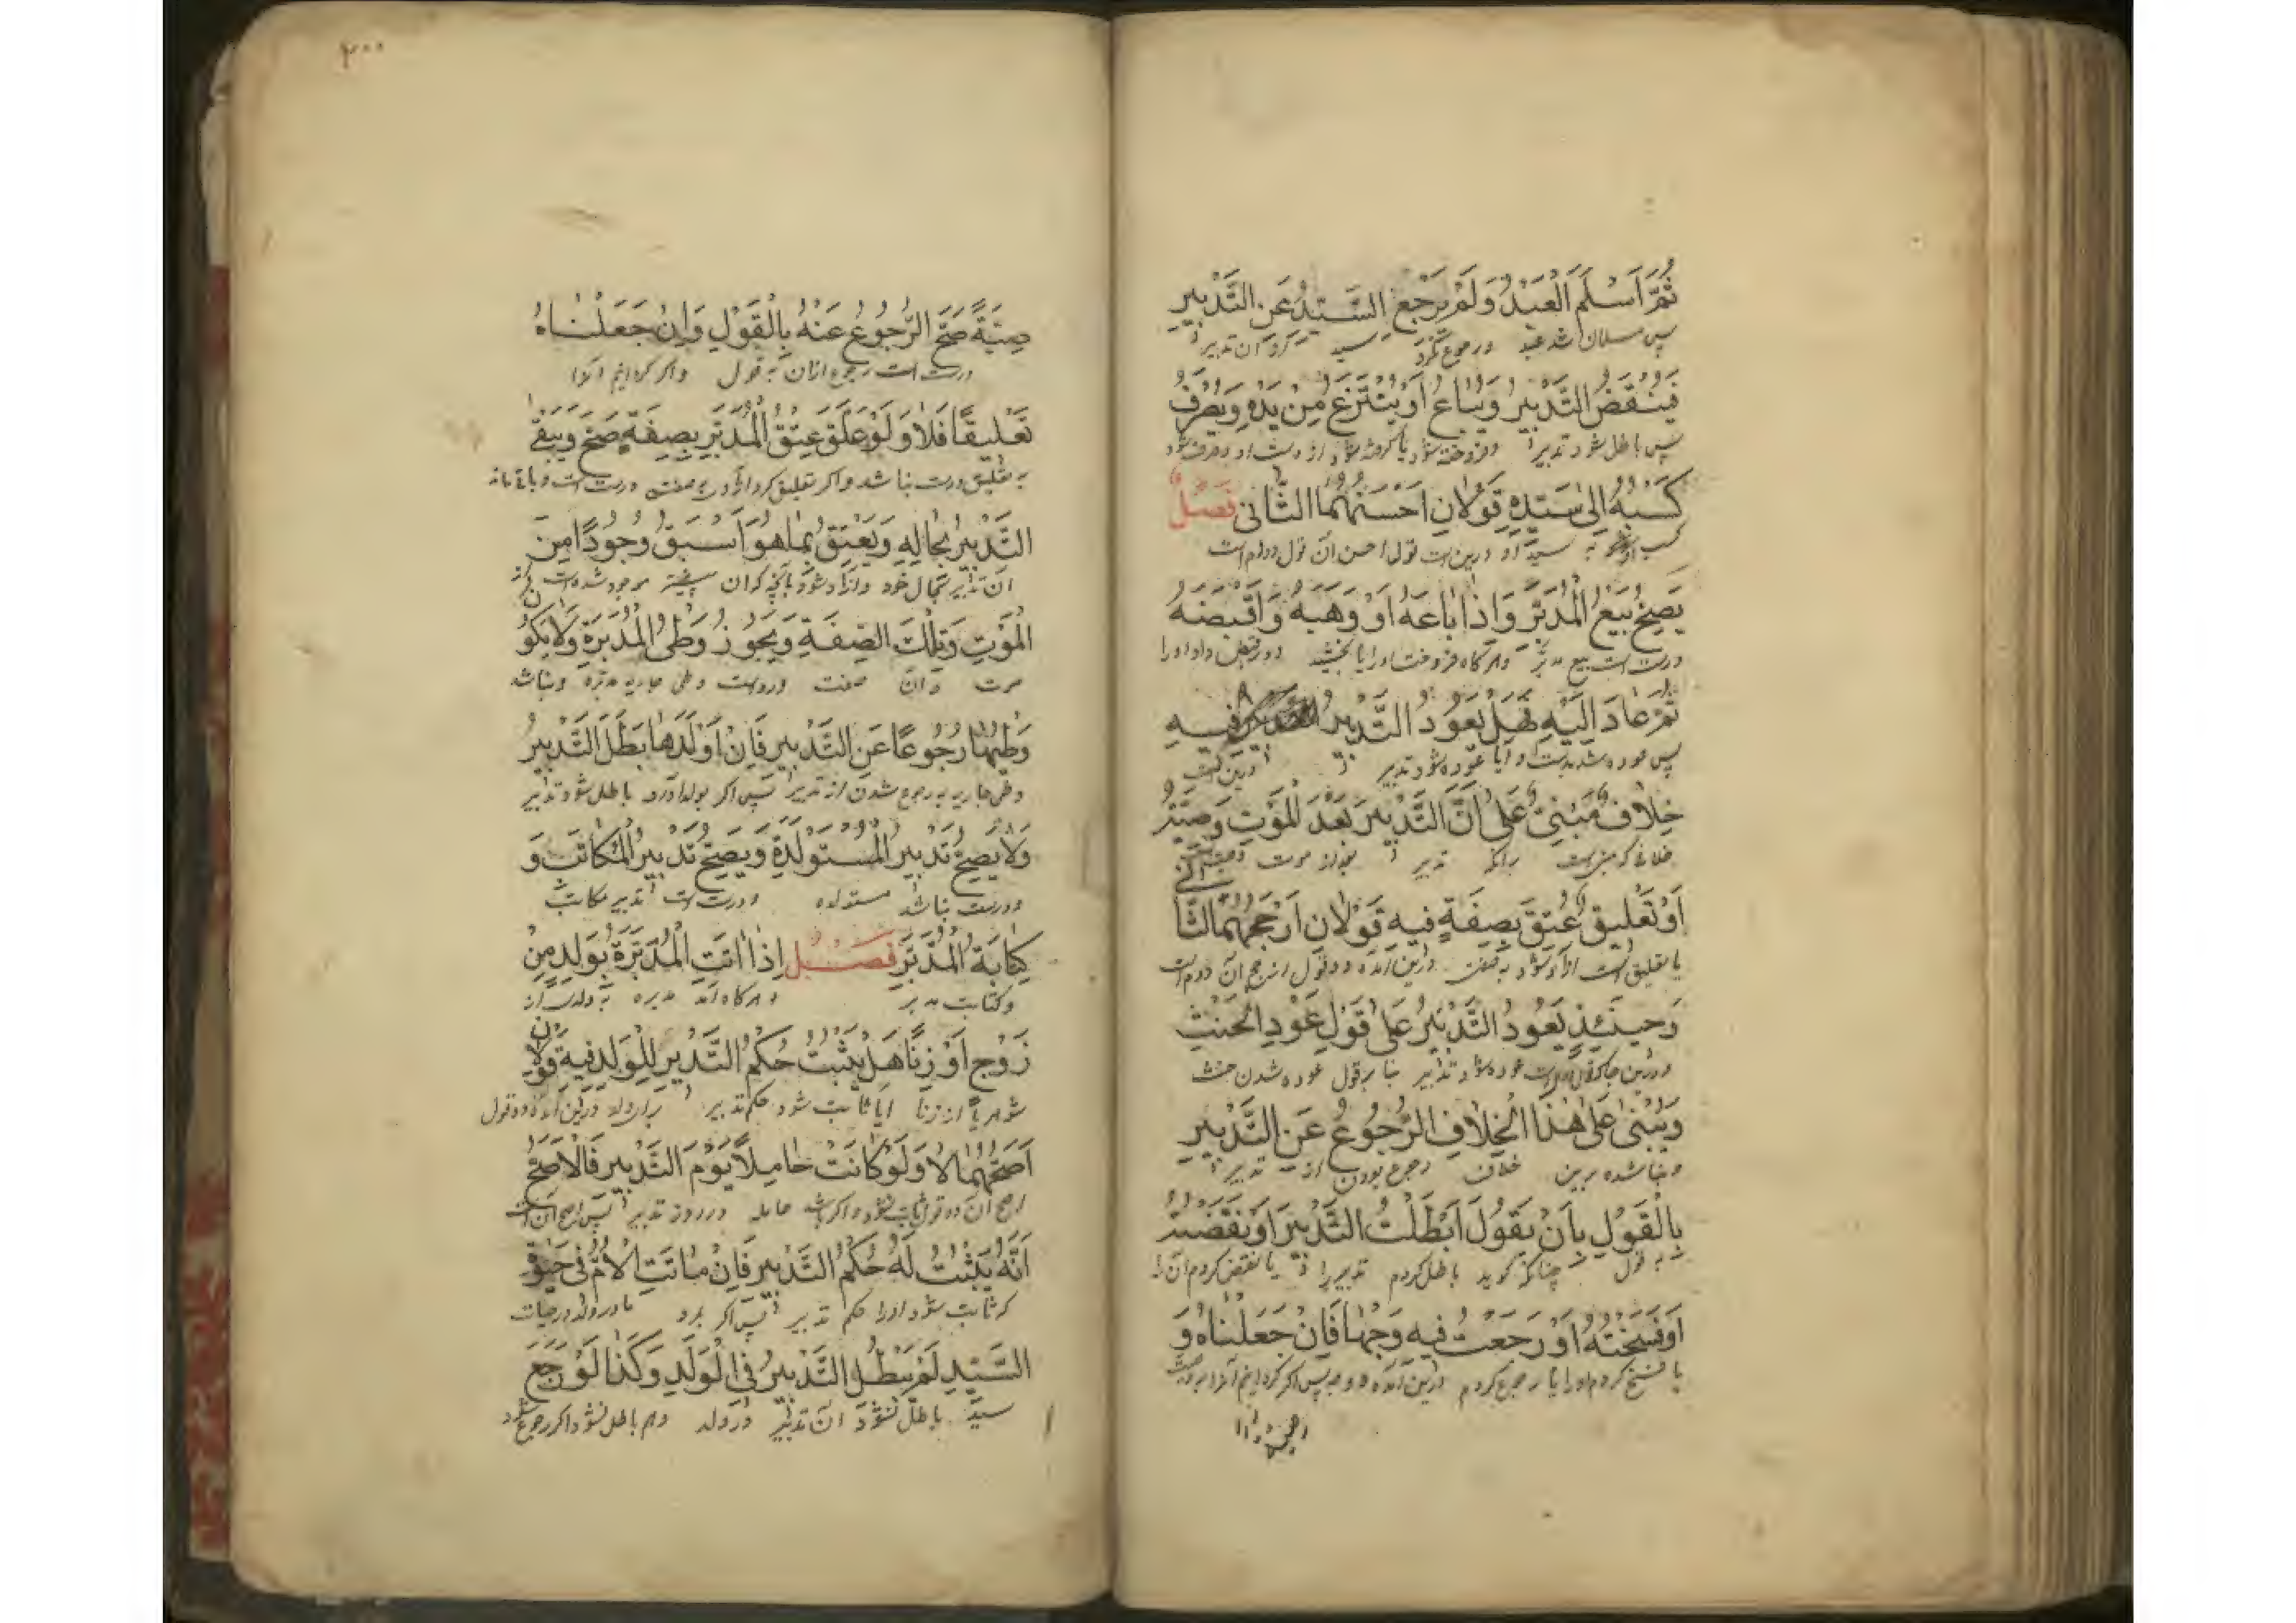 ثُمَّ اَسْلَمَ الْعَبْدُ وَلَمْ يَرْجِعِ السَّيِّدُ عَنِ التَّدْبِيرِ
پس مسلمان شد عبد و رجوع نكرد سيد از ان تدبير
فَيُنْقَضُ التَّدْبِيرُ وَيُبَاعُ اَوْ يُنْتَزَعُ مِنْ يَدِهِ وَيُصْرَفُ
پس باطل شود تدبير و فروخته شود يا گرفته شود از دست او و صرف شود
كَسْبُهُ اِلٰى سَيِّدِهِ قَوْلَانِ اَحْسَنُهُمَا الثَّانِى فَصْلٌ
كسب او به سيد او درين است قول احسن ان قول دوم است
يَصِحُّ بَيْعُ الْمُدَبَّرِ وَاِذَا بَاعَهُ اَوْ وَهَبَهُ وَاَقْبَضَهُ
درست است بيع مدبر و هر كاه فروخت او را يا بخشيد و در قبض داد او را
ثُمَّ عَادَ اِلَيْهِ فَهَلْ يَعُودُ التَّدْبِيرُ فِيهِ
پس عوده شد بدست او آيا عوده شود تدبير
خِلَافٌ مَبْنِىٌّ عَلٰى اَنَّ التَّدْبِيرَ بَعْدَ الْمَوْتِ وَصِيَّةٌ
خلافى كه مبنى است برانكه تدبير بعد از موت وصيت
اَوْ تَعْلِيقُ عِتْقٍ بِصِفَةٍ فِيهِ قَوْلَانِ اَرْجَحُهُمَا الثَّانِى
يا تعليق است ازاد شود به صفت درين آمده دو قول ارجح ان دوم است
وَحِينَئِذٍ يَعُودُ التَّدْبِيرُ عَلٰى قَوْلِ عَوْدِ الْحِنْثِ
عوده شود تدبير بنا بر قول عوده شدن حنث
وَيُبْنٰى عَلٰى هٰذَا الْخِلَافِ الرُّجُوعُ عَنِ التَّدْبِيرِ
و بنا شده برين خلاف رجوع بودن از تدبير
بِالْقَوْلِ بِاَنْ يَقُولَ اَبْطَلْتُ التَّدْبِيرَ اَوْ نَقَضْتُهُ
به قول چنانكه كويد باطل كردم تدبير را يا نقض كردم ان را
اَوْ فَسَخْتُهُ اَوْ رَجَعْتُ فِيهِ وَجْهَا فَاِنْ جَعَلْنَاهُ وَ
يا فسخ كردم او را يا رجوع كردم درين آمده دو وجه پس اكر كرده ايم انرا وصيت
٣٠٠
صِيَّةً صَحَّ الرُّجُوعُ عَنْهُ بِالْقَوْلِ وَاِنْ جَعَلْنَاهُ
درست است رجوع ازان به قول و اكر كرده ايم انرا
تَعْلِيقًا فَلَا وَلَوْ عَلَّقَ عِتْقَ الْمُدَبَّرِ بِصِفَةٍ صَحَّ وَيَبْقٰى
به تعليق درست نباشد و اكر تعليق كرد به صفت درست است و باقى ماند
التَّدْبِيرُ بِحَالِهِ وَيَعْتِقُ بِمَا هُوَ اَسْبَقُ وُجُودًا مِنَ
ان تدبير بحال خود و ازاد شود بانچه كه ان پيشتر موجود شده است از
الْمَوْتِ وَتِلْكَ الصِّفَةِ وَيَجُوزُ وَطْئُ الْمُدَبَّرَةِ وَلَا يَكُونُ
موت و آن صفت و رواست وطى جاريه مدبره و نباشد
وَطْيُهَا رُجُوعًا عَنِ التَّدْبِيرِ فَاِنْ اَوْلَدَهَا بَطَلَ التَّدْبِيرُ
وطى جاريه به رجوع شدن از تدبير پس اكر بولد آورد باطل شود تدبير
وَلَا يَصِحُّ تَدْبِيرُ الْمُسْتَوْلَدَةِ وَيَصِحُّ تَدْبِيرُ الْمُكَاتَبِ وَ
و درست نباشد مستولده و درست است تدبير مكاتب
كِتَابَةُ الْمُدَبَّرِ فَصْلٌ اِذَا اَتَتِ الْمُدَبَّرَةُ بِوَلَدٍ مِنْ
و كتابت مدبر و هر كاه آمد مدبره به ولد از
زَوْجٍ اَوْ زِنًا هَلْ يَثْبُتُ حُكْمُ التَّدْبِيرِ لِلْوَلَدِ فِيهِ قَوْلَانِ
شوهر يا از زنا ايا ثابت شود حكم تدبير براى ولد درين آمده دو قول
اَصَحُّهُمَا لَا وَلَوْ كَانَتْ حَامِلًا يَوْمَ التَّدْبِيرِ فَالْاَصَحُّ
اصح ان دو قول ثابت نشود و اكر باشد حامله در روز تدبير پس اصح ان است
اَنَّهُ يَثْبُتُ لَهُ حُكْمُ التَّدْبِيرِ فَاِنْ مَاتَتِ الْاُمُّ فِى حَيٰوةِ
كه ثابت شود او را حكم تدبير پس اكر بمرد مادر ولد در حيات
السَّيِّدِ لَمْ يَبْطُلِ التَّدْبِيرُ فِى الْوَلَدِ وَكَذَا لَوْ رَجَعَ
سيد باطل نشود ان تدبير در ولد و هم باطل نشود اكر رجوع شود